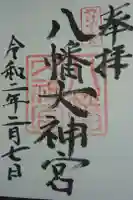 奉拝
八幡大神宮
令和二年二月七日